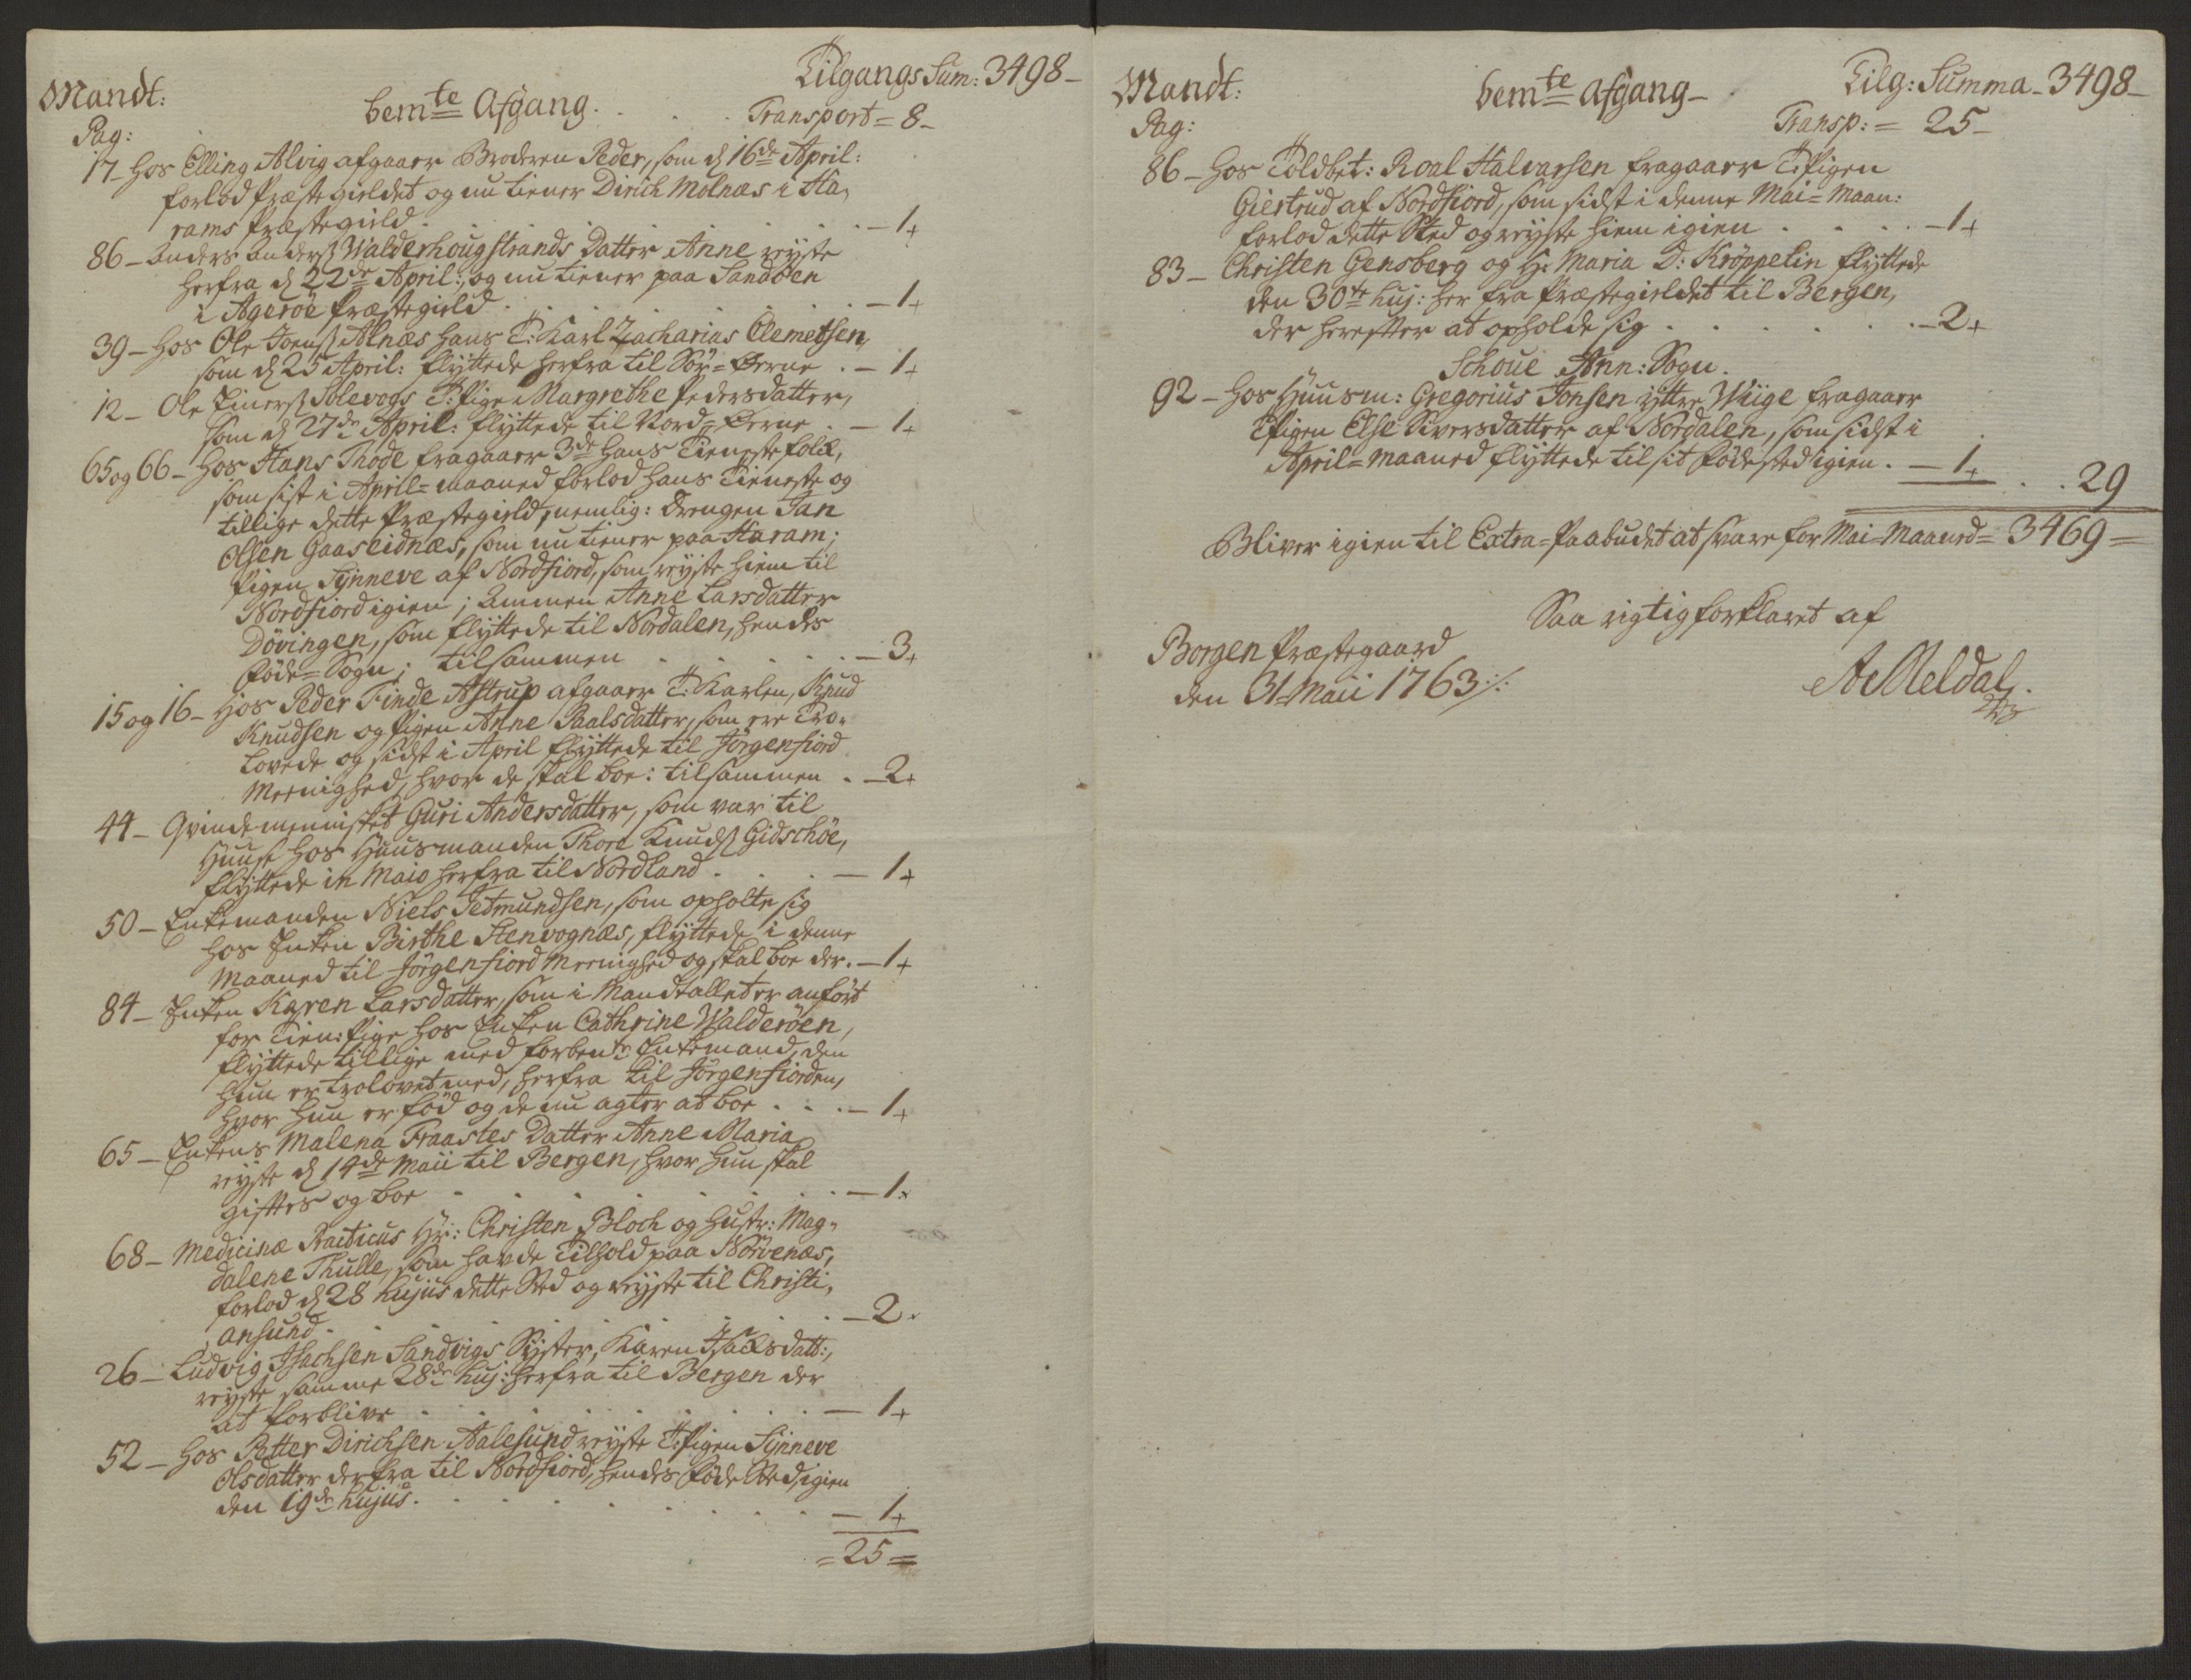 Tilgangs Sum: 3498-
Mandt:
bemte Afgang. . . . Transport = 8-
Pag:
17- Hos Elling Alvig afgaaer Broderen Peder, som d 16de April:
forlod Præstegieldet og nu tiener Dirich Molnæs i Ha,
rams Præstegield . . . . . . . - 1+
86- Anders Anders: Walderhougstrands Datter Anne reyste
herfra d 22de April:, og nu tiener paa Sandøen
i Agerøe Præstegield . . . . . . . - 1+
39- Hos Ole Joens: Alnæs hans T: Karl Zacharias Clemetsen,
som d 25 April: flyttede herfra til Sør=Øerne . - 1+
12- Ole Einers: Solevogs T: Pige Margrethe Pedersdatter,
som d 27de April: flyttede til Nord=Øerne . - 1+
65 og 66- Hos Hans Thode fragaaer 3de hans Tienestefolk,
som sist i April=maaned forlod hans Tieneste og
tillige dette Præstegield, nemlig: Drengen Jan
Olsen Gaaseidnæs, som nu tiener paa Haram;
Pigen Synneve af Nordfiord, som reyste hiem til
Nordfiord igien; Ammen Anne Larsdatter
Døvingen, som flyttede til Nordalen, hendes
føde=Sogn; tilsammen . . . . . - 3+
15 og 16- Hos Peder Finde Astrup afgaaer T: Karlen, Knud
Knudsen og Pigen Anne Paalsdatter, som ere Tro-
lovede og sidst i April flyttede til Jørgenfiord
Meenighed, hvor de skal boe: tilsammen . - 2+
44- Qvindemennisket Guri Andersdatter, som var til
Huuse hos Huusmanden Thore Knuds: Gidschøe,
flyttede in Maio herfra til Nordland . . . - 1+
50- Enkemanden Niels Jetmundsen, som opholte sig
hos Enken Birthe Stenvognæs, flyttede i denne
Maaned til Jørgenfiord Meenighed og skal boe der. - 1+
84- Enken Karen Larsdatter, som i Mandtallet er anført
for Tien: Pige hos Enken Cathrine Walderøen,
flyttede tillige med forbemte Enkemand, den
hun er trolovet med, herfra til Jørgenfiorden,
hvor hun er fød og de nu agter at boe . . . - 1+
65- Enkens Malena Fraastes Datter Anne Maria
reyste d 14de Maii til Bergen, hvor hun skal
gifttes og boe . . . . . . . - 1.
68- Medicinæ Practicus Hr: Christen Bloch og Hustr: Mag-
dalene Thulle, som havde Tilhold paa Nørvenæs,
forlod d 28 hujus dette Sted og reyste til Christi,
ansund . . . . . . . . - 2.
26- Ludvig Isachsen Sandvigs Syster, Karen Isacksdatt:,
reyste samme 28de huj: herfra til Bergen der
at forblive . . . . . . . - 1+
52- Hos Petter Dirichsen Aalesund reyste T: Pigen Synneve
Olsdatter derfra til Nordfiord, hendes føde Sted, igien
den 19de hujus . . . . . . . - 1+
= 25 =
Mandt:
bemte Afgang-
Tilg: Summa- 3498-
Pag:
Transp: = 25-
86- Hos Toldbet: Roal Halvarsen fragaaer T: Pigen
Giertrud af Nordfiord, som sidst i denne Mai=Maan:
forlod dette Sted og reyste hiem igien . . . - 1+
83- Christen Gensberg og H: Maria D: Krøppelin flyttede
den 30te huj: her fra Præstegieldet til Bergen,
der herefter at opholde sig . . . . . . - 2+
Schoue Ann: Sogn.
92- Hos Huusm: Gregorius Jonsen yttre Wiige fragaaer
T Pigen Else Siversdatter af Nordalen, som sidst i
April=Maaned flyttede til sit fødested igien. - 1+ . . 29
Bliver igien til Extra=Paabudet at svare for Mai=Maaned = 3469 =
Saa rigtig forklaret af
Borgen Præstegaard
den 31 Maii 1763 ./.
A Meldal.